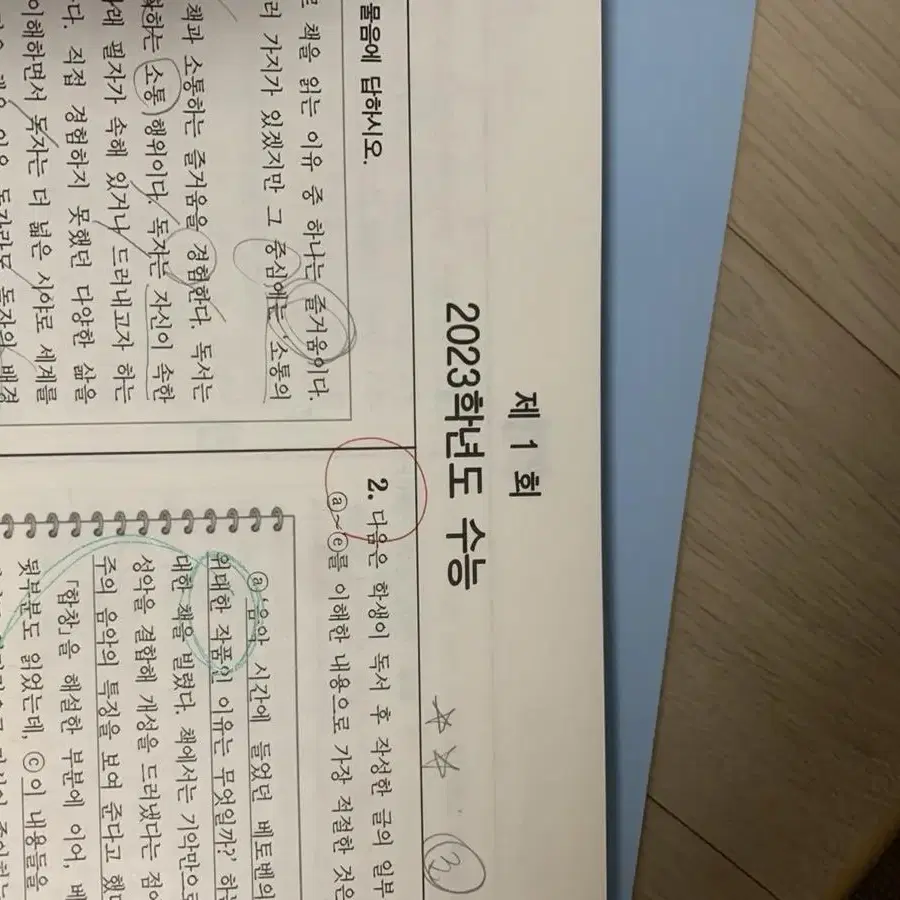 제 1 회
2023학년도 수능
물음에 답하시오.
책을 읽는 이유 중 하나는 즐거움이다.
가지가 있겠지만 그 중심에는 '소통의
책과 소통하는 즐거움을 경험한다. 독서는
하는 소통 행위이다. 독자는 자신이 속한
필자가 속해 있거나 드러내고자 하는
다. 직접 경험하지 못했던 다양한 삶을
이해하면서 독자는 더 넓은 시야로 세계를
2. 다음은 학생이 독서 후 작성한 글의 일부
ⓐ~ⓔ를 이해한 내용으로 가장 적절한 것은
ⓐ'음악 시간에 들었던 베토벤의
위대한 작품인 이유는 무엇일까?'
대한 책을 빌렸다. 책에서는 기악만으로
성악을 결합해 개성을 드러냈다는 점
주의 음악의 특징을 보여 준다고 했
「합창」을 해설한 부분에 이어, 베
뒷부분도 읽었는데, ⓒ이 내용들을